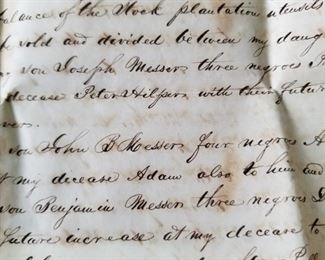 balance of the Stock plantation utensels
sold and divided between my daug
son Joseph Messer three negroes
decease Peter & Hilper with their future
ver.
son John B Messer four negroes A
at my decease Adam also to him and
son Benjamin Messer three negroes
future increase at my decease to